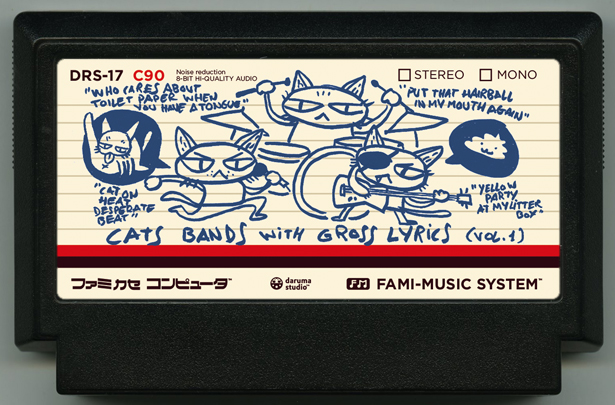 DRS-17 C90
Noise reduction
8-BIT HI-QUALITY AUDIO
STEREO
MONO
"WHO CARES ABOUT
TOILET PAPER WHEN
YOU HAVE A TONGUE"
"PUT THAT HAIRBALL
IN MY MOUTH AGAIN"
"CAT ON
HEAT
DESPERATE
BEAT"
"YELLOW
PARTY
AT MY LITTER
BOX"
CATS BANDS WITH GROSS LYRICS (VOL.1)
ファミカセ コンピュータ™
daruma
studio™
FM FAMI-MUSIC SYSTEM™